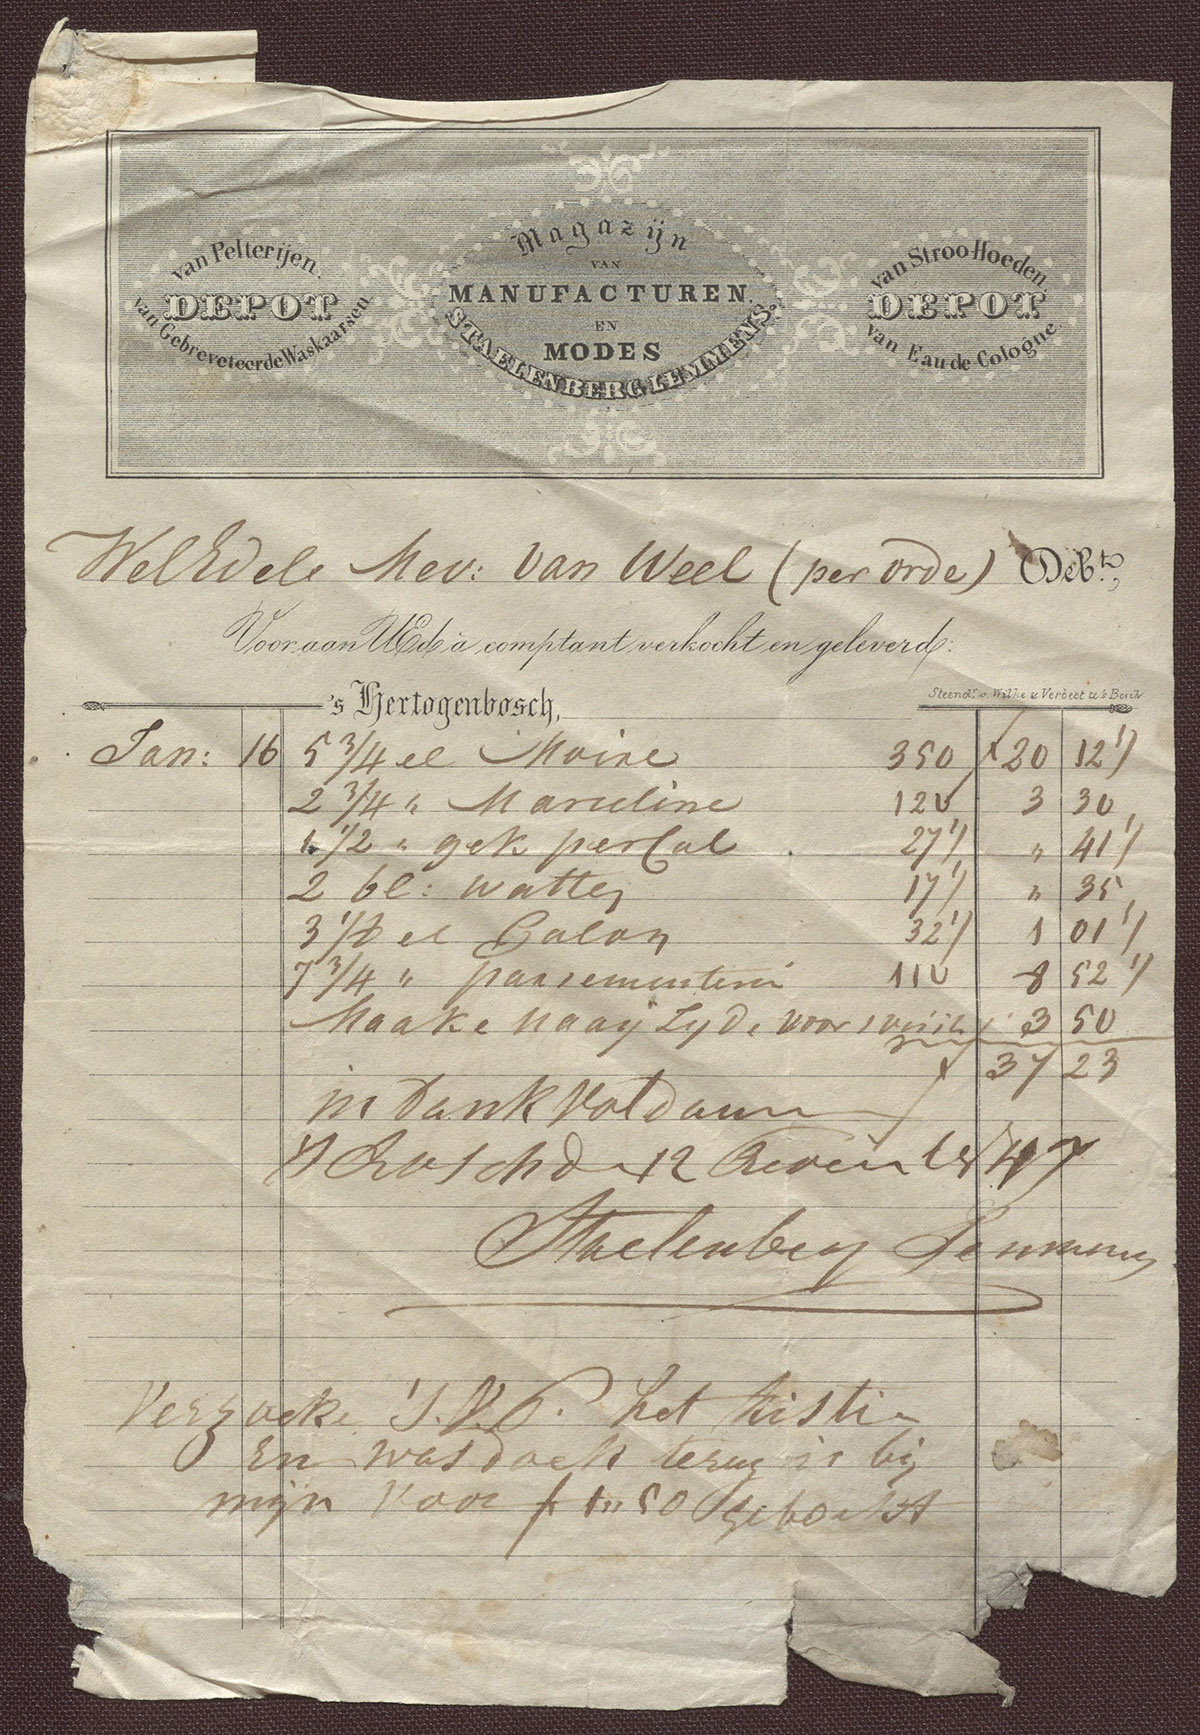 van Pelterijen.
DEPOT
van Gebreveteerde Waskaarsen
Magazijn
VAN
MANUFACTUREN.
EN
MODES
STAELENBERG LEMMENS.
van Stroo Hoeden
DEPOT
van Eau de Cologne.
WelEdele Mev: Van Weel (per orde) Debt.
Voor aan UEd à comptant verkocht en geleverd:
Steendr. v. Wilke & Verbeet te 's Bosch
's Hertogenbosch,
Jan: 16 5 3/4 el Moire 350 f 20 12 1/2
2 3/4 " Marceline 120 3 30
1 1/2 " gek percal 27 1/2 " 41 1/2
2 bl: watten 17 1/2 " 35
3 1/8 el Galon 32 1/2 1 01 1/2
7 3/4 " passementerie 110 8 52 1/2
Maake Naaij Zyde voor 3 50
f 37 23
in Dank Voldaan
's Bosch d 12 47
Staelenberg Lemmens
Verzoeke 'S.V.P. het kistie
En wasdoek terug is bij
mijn voor f 1" 50 geboekt